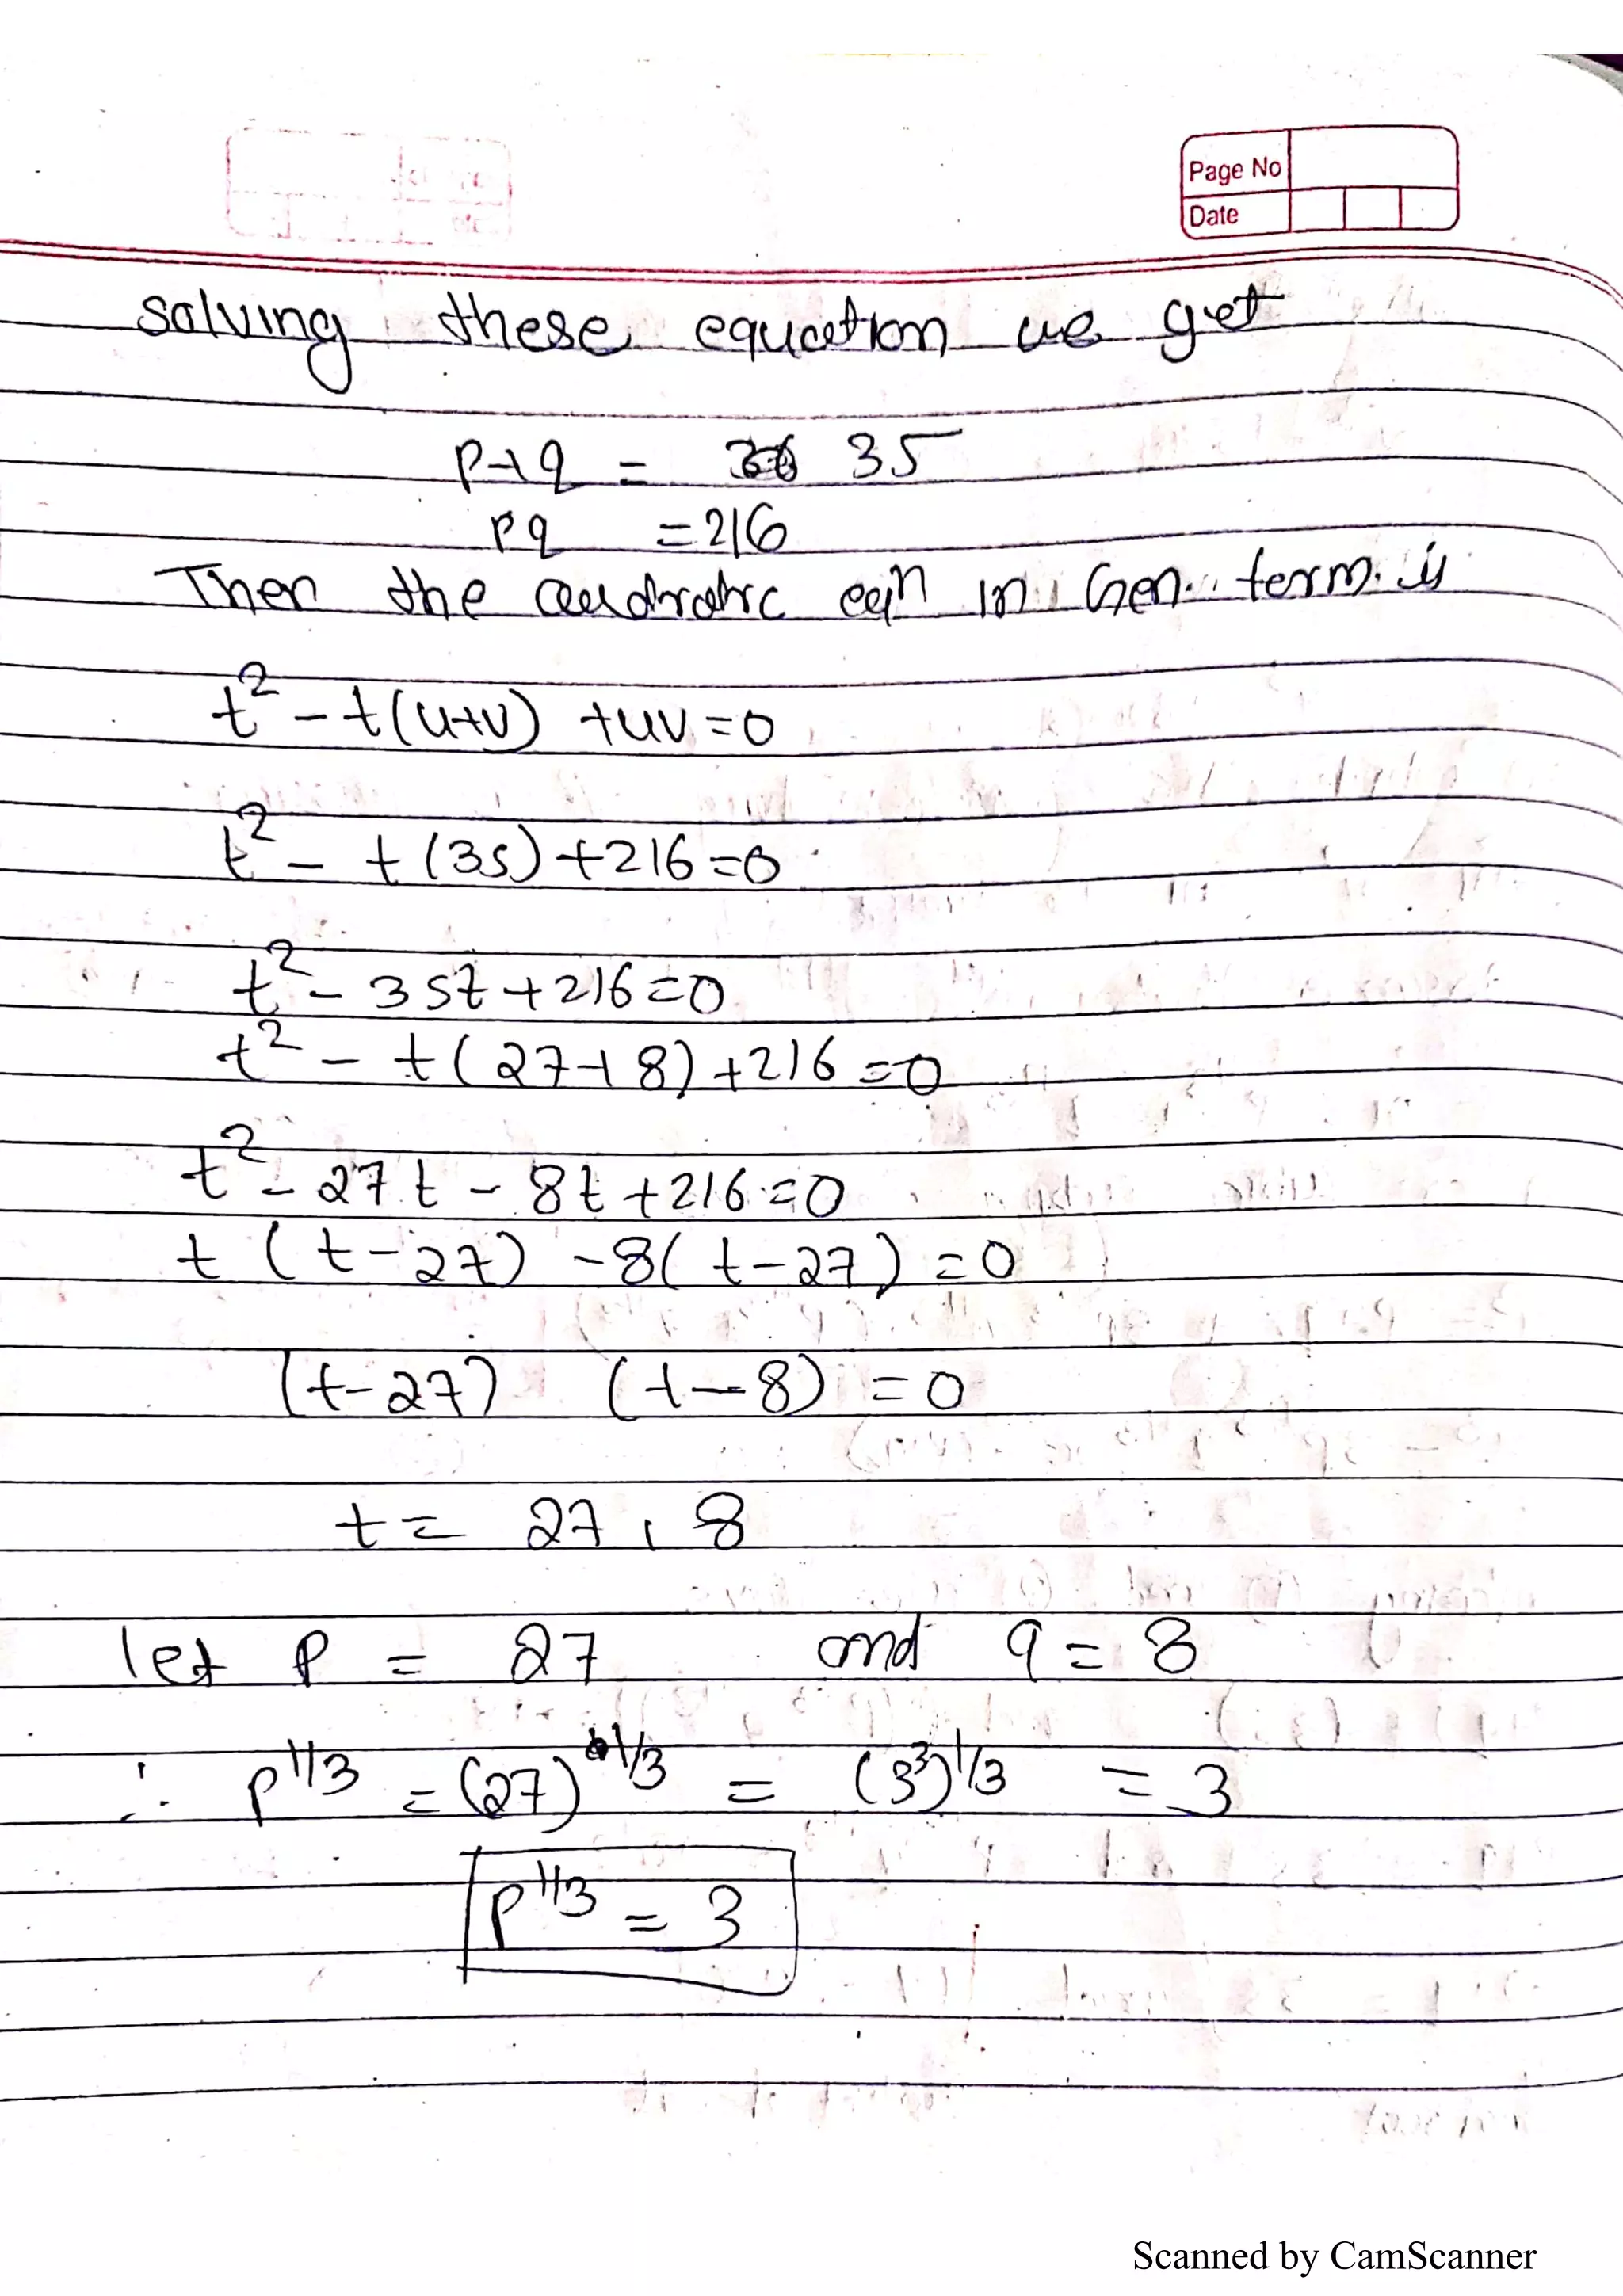 Page No
Date
solving these equation we get
p+q = 35
pq = 216
Then the quadratic eqn in Gen. term. is
t² - t(u+v) + uv = 0
t² - t(35) + 216 = 0
t² - 35t + 216 = 0
t² - t(27+8) + 216 = 0
t² - 27t - 8t + 216 = 0
t (t-27) - 8(t-27) = 0
(t-27) (t-8) = 0
t = 27, 8
let p = 27 and q = 8
∴ p^1/3 = (27)^1/3 = (3³)^1/3 = 3
p^1/3 = 3
Scanned by CamScanner